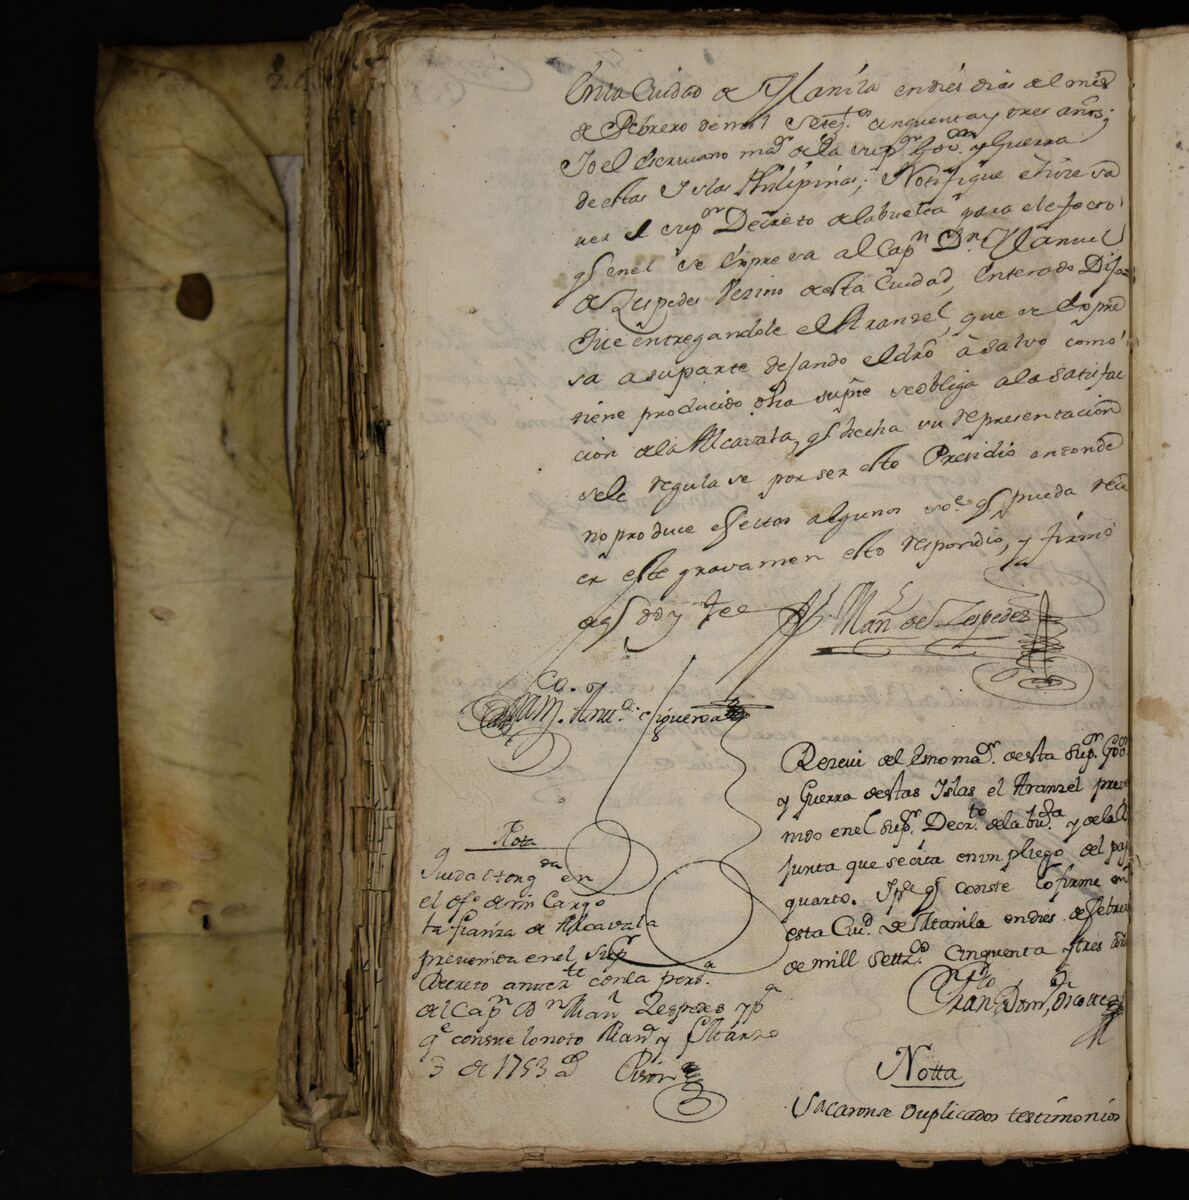 En la Ciudad de Manila en dies dias del mes
de Febrero de mil Setes.os cinquenta y tres años;
Yo el Escrivano mar. de la sup.or Gov.on y Guerra
de estas Yslas Philipinas; Notifique e hize sa
ver el sup.or Decreto de la buelta para el efecto
q.e en el se expresa al Cap.n D.n Manuel
de Zespedes Vezino de esta Ciudad, Enterado Dijo
Que entregandole el Aranzel, que se expre
sa a su parte dejando el dro â salvo como
tiene producido se obliga a la satisfac
cion de la Alcavala, q.e hecha su representacion
sele regula se por ser esto Presidio en donde
no produce efectos algunos q.e pueda reca
er este gravamen esto respondio, y firmó
de q.e doy fee
Man.l de Zespedes
Recevi del Esno mar. de esta Sup.or Gov.on
y Guerra de estas Islas el Aranzel preve
nido en el Sup.or Decr.to de la bu.ta y de la
Junta que se cita en un pliego del pap
quarto. Y p.a q.e conste lo firme en
esta Ciu.d de Manila en dies de Febrero
de mill Settz.os cinquenta y tres años
Fran.co Dom.o
Nota
Queda otorg.da en
el ofº de mi Cargo
la fianza de Alcavala
prevenida en el Sup.or
Decreto antez.te con la pers.a
del Cap.n D.n Man.l Zespedes y p.a
q.e conste lo noto Man.a y Marzo
3 de 1753 a.s
Notta
Sacaronse duplicados testimonios